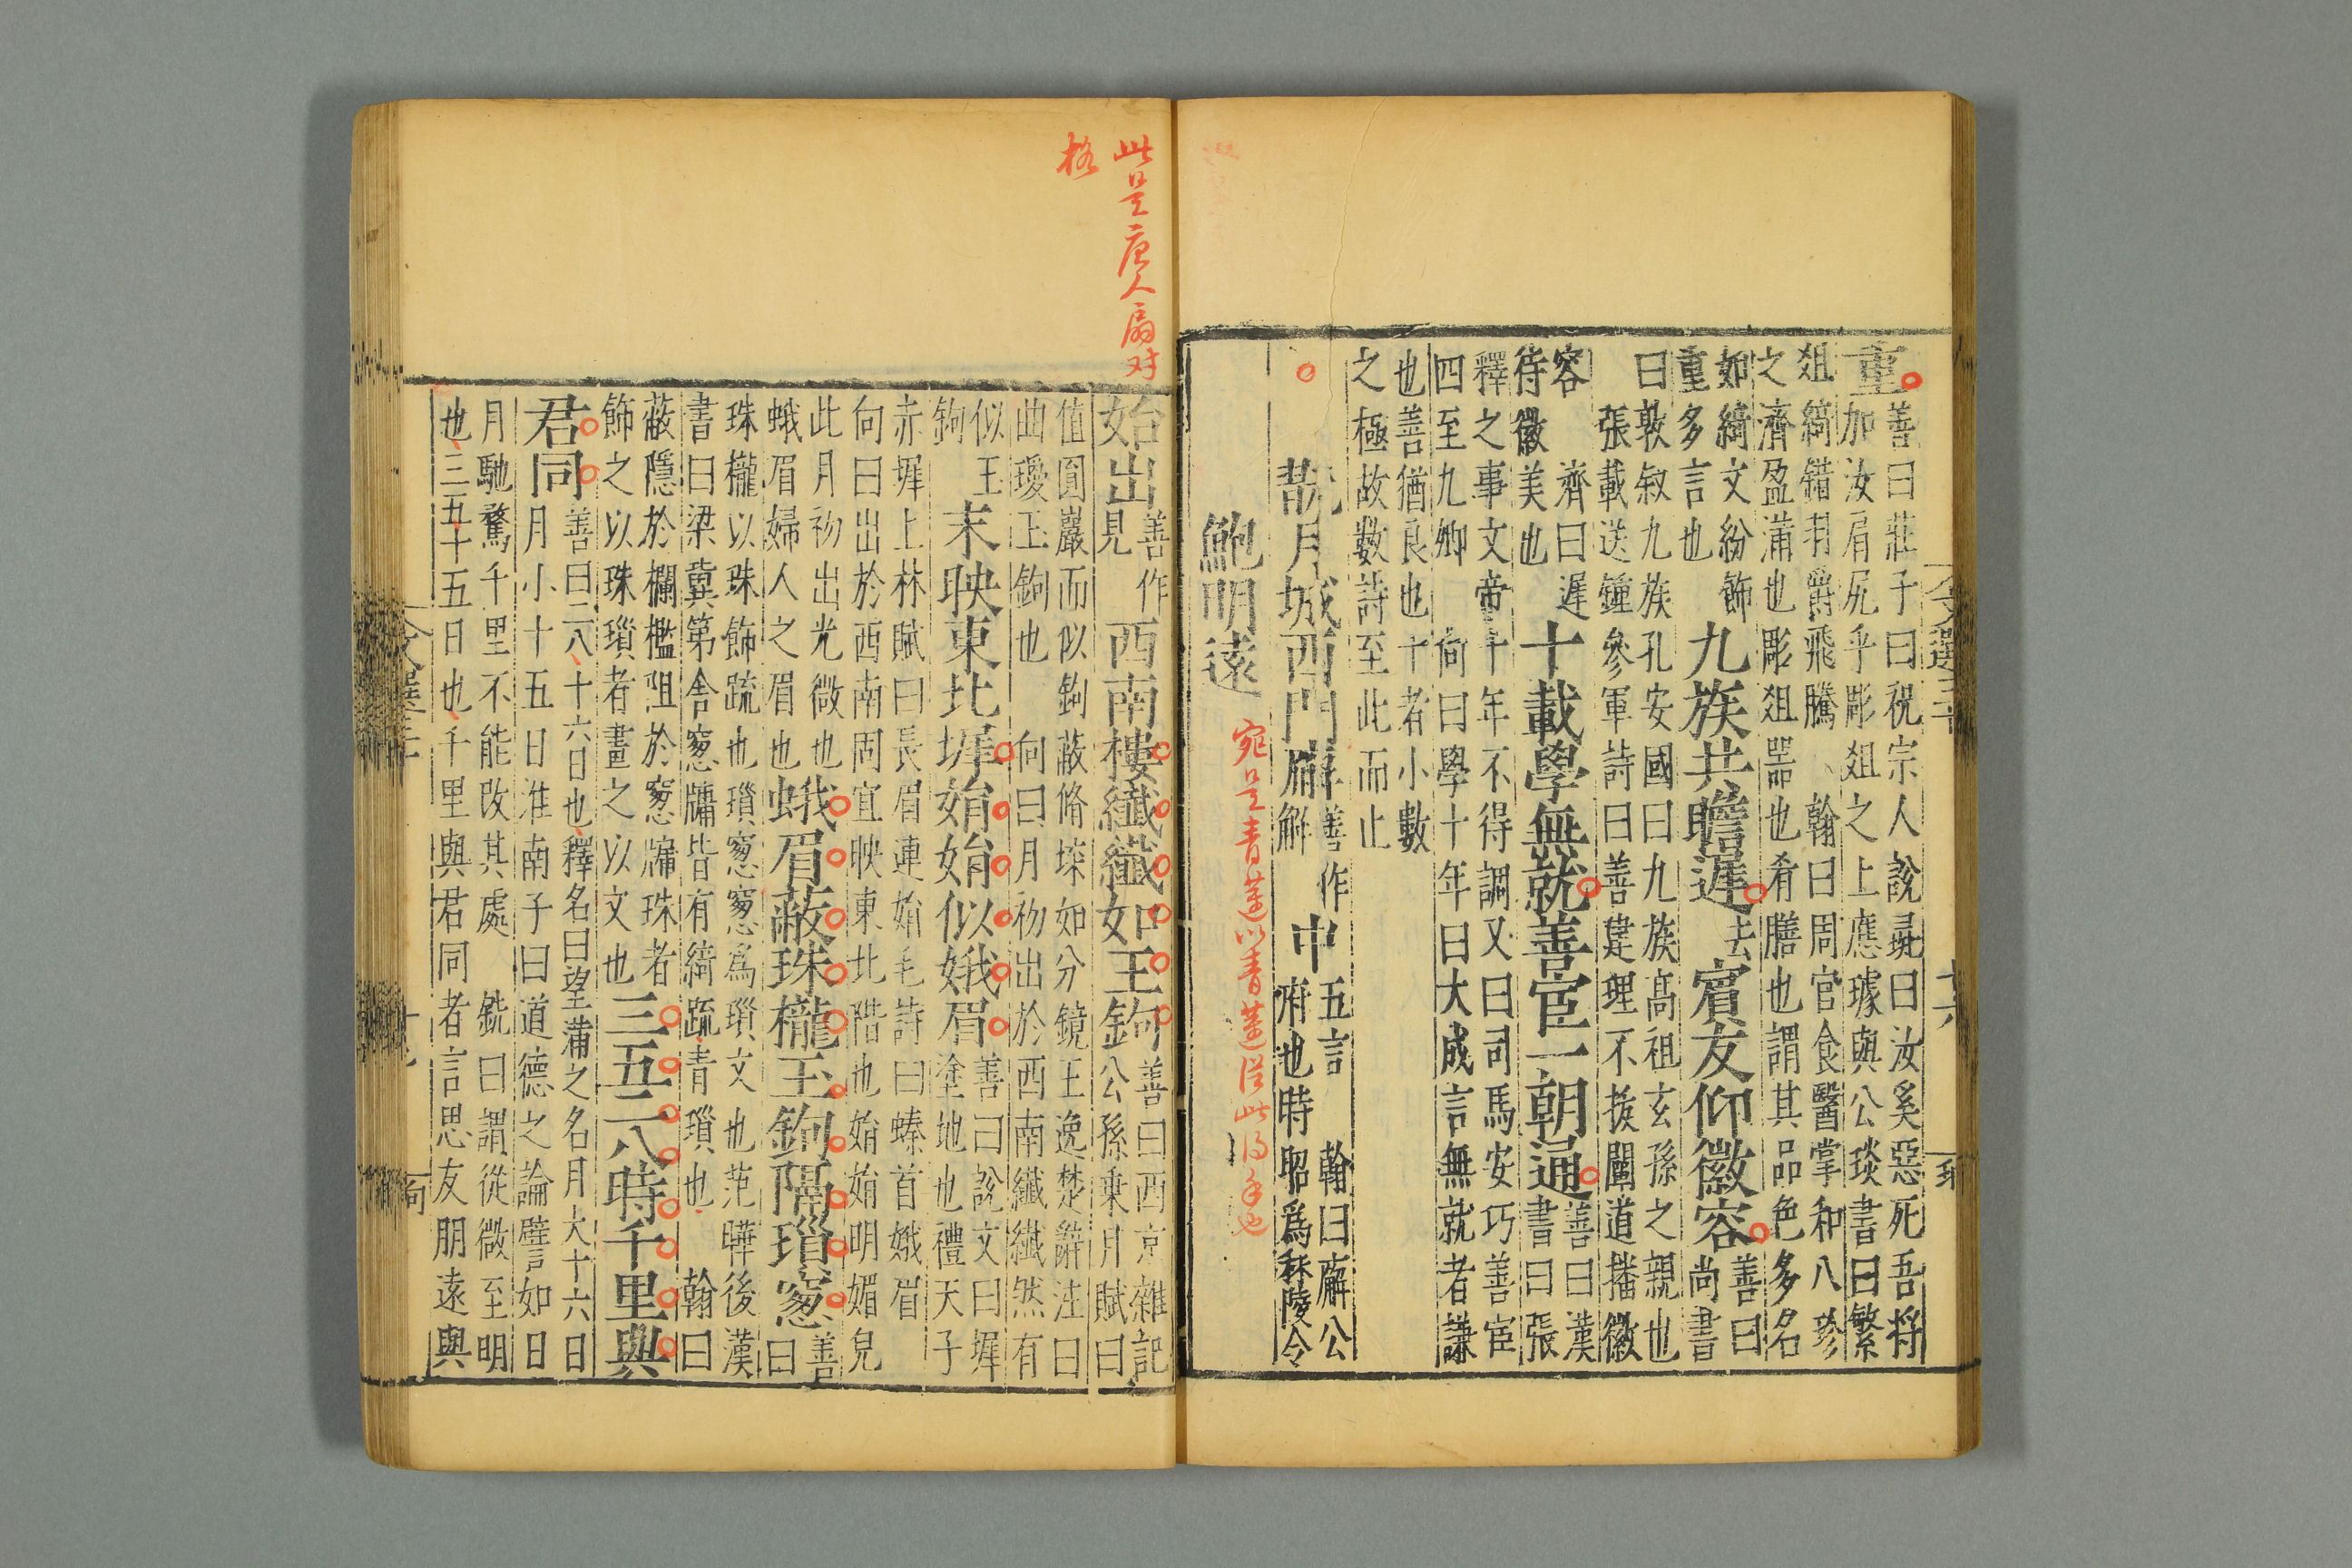 重
善曰莊子曰祝宗人說彘曰汝奚惡死吾將
加汝肩尻乎彫俎之上應璩與公琰書曰繁
俎綺錯羽爵飛騰 翰曰周官食醫掌和八珍
之濟盈蒲也彫俎器也肴膳也謂其品色多名
如綺文紛飾
重多言也
九族共瞻遲
去
賓友仰徽容
善曰
尚書
曰敦叙九族孔安國曰九族高祖玄孫之親也
張載送鍾參軍詩曰善建理不拔闡道播徽
容 濟曰遲
待徽美也
十載學無就善宦一朝通
善曰漢
書曰張
釋之事文帝十年不得調又曰司馬安巧善宦
四至九卿 向曰學十年曰大成言無就者謙
也善猶良也十者小數
之極故數詩至此而止
翫月城西門廨
善作
解
中
五言 翰曰廨公
府也時昭爲秣陵令
鮑明遠
宛是青蓮以青蓮從此得手也
此是唐人扇对
格
始出
善作
見
西南樓纖纖如玉鉤
善曰西京雜記
公孫乗月賦曰
值圓巖而似鉤蔽脩堞如分鏡王逸楚辭注曰
曲瓊玉鉤也 向曰月初出於西南纖纖然有
似玉
鉤
末映東北墀娟娟似娥眉
善曰說文曰墀
塗地也禮天子
赤墀上林賦曰長眉連娟毛詩曰螓首娥眉
向曰出於西南周宜映東北階也娟娟明媚皃
此月初出光微也
蛾眉婦人之眉也
蛾眉蔽珠櫳玉鉤隔瑣窻
善
曰
珠櫳以珠飾疏也瑣窻窻爲瑣文也范曄後漢
書曰梁冀第舍窻牖皆有綺疏青瑣也 翰曰
蔽隱於欄檻阻於窻牖珠者
飾之以珠瑣者畫之以文也
三五二八時千里與
君同
善曰二八十六日也釋名曰望蒲之名月大十六日
月小十五日淮南子曰道德之論譬如日
月馳騖千里不能改其處 銑曰謂從微至明
也三五十五日也千里與君同者言思友朋遠與